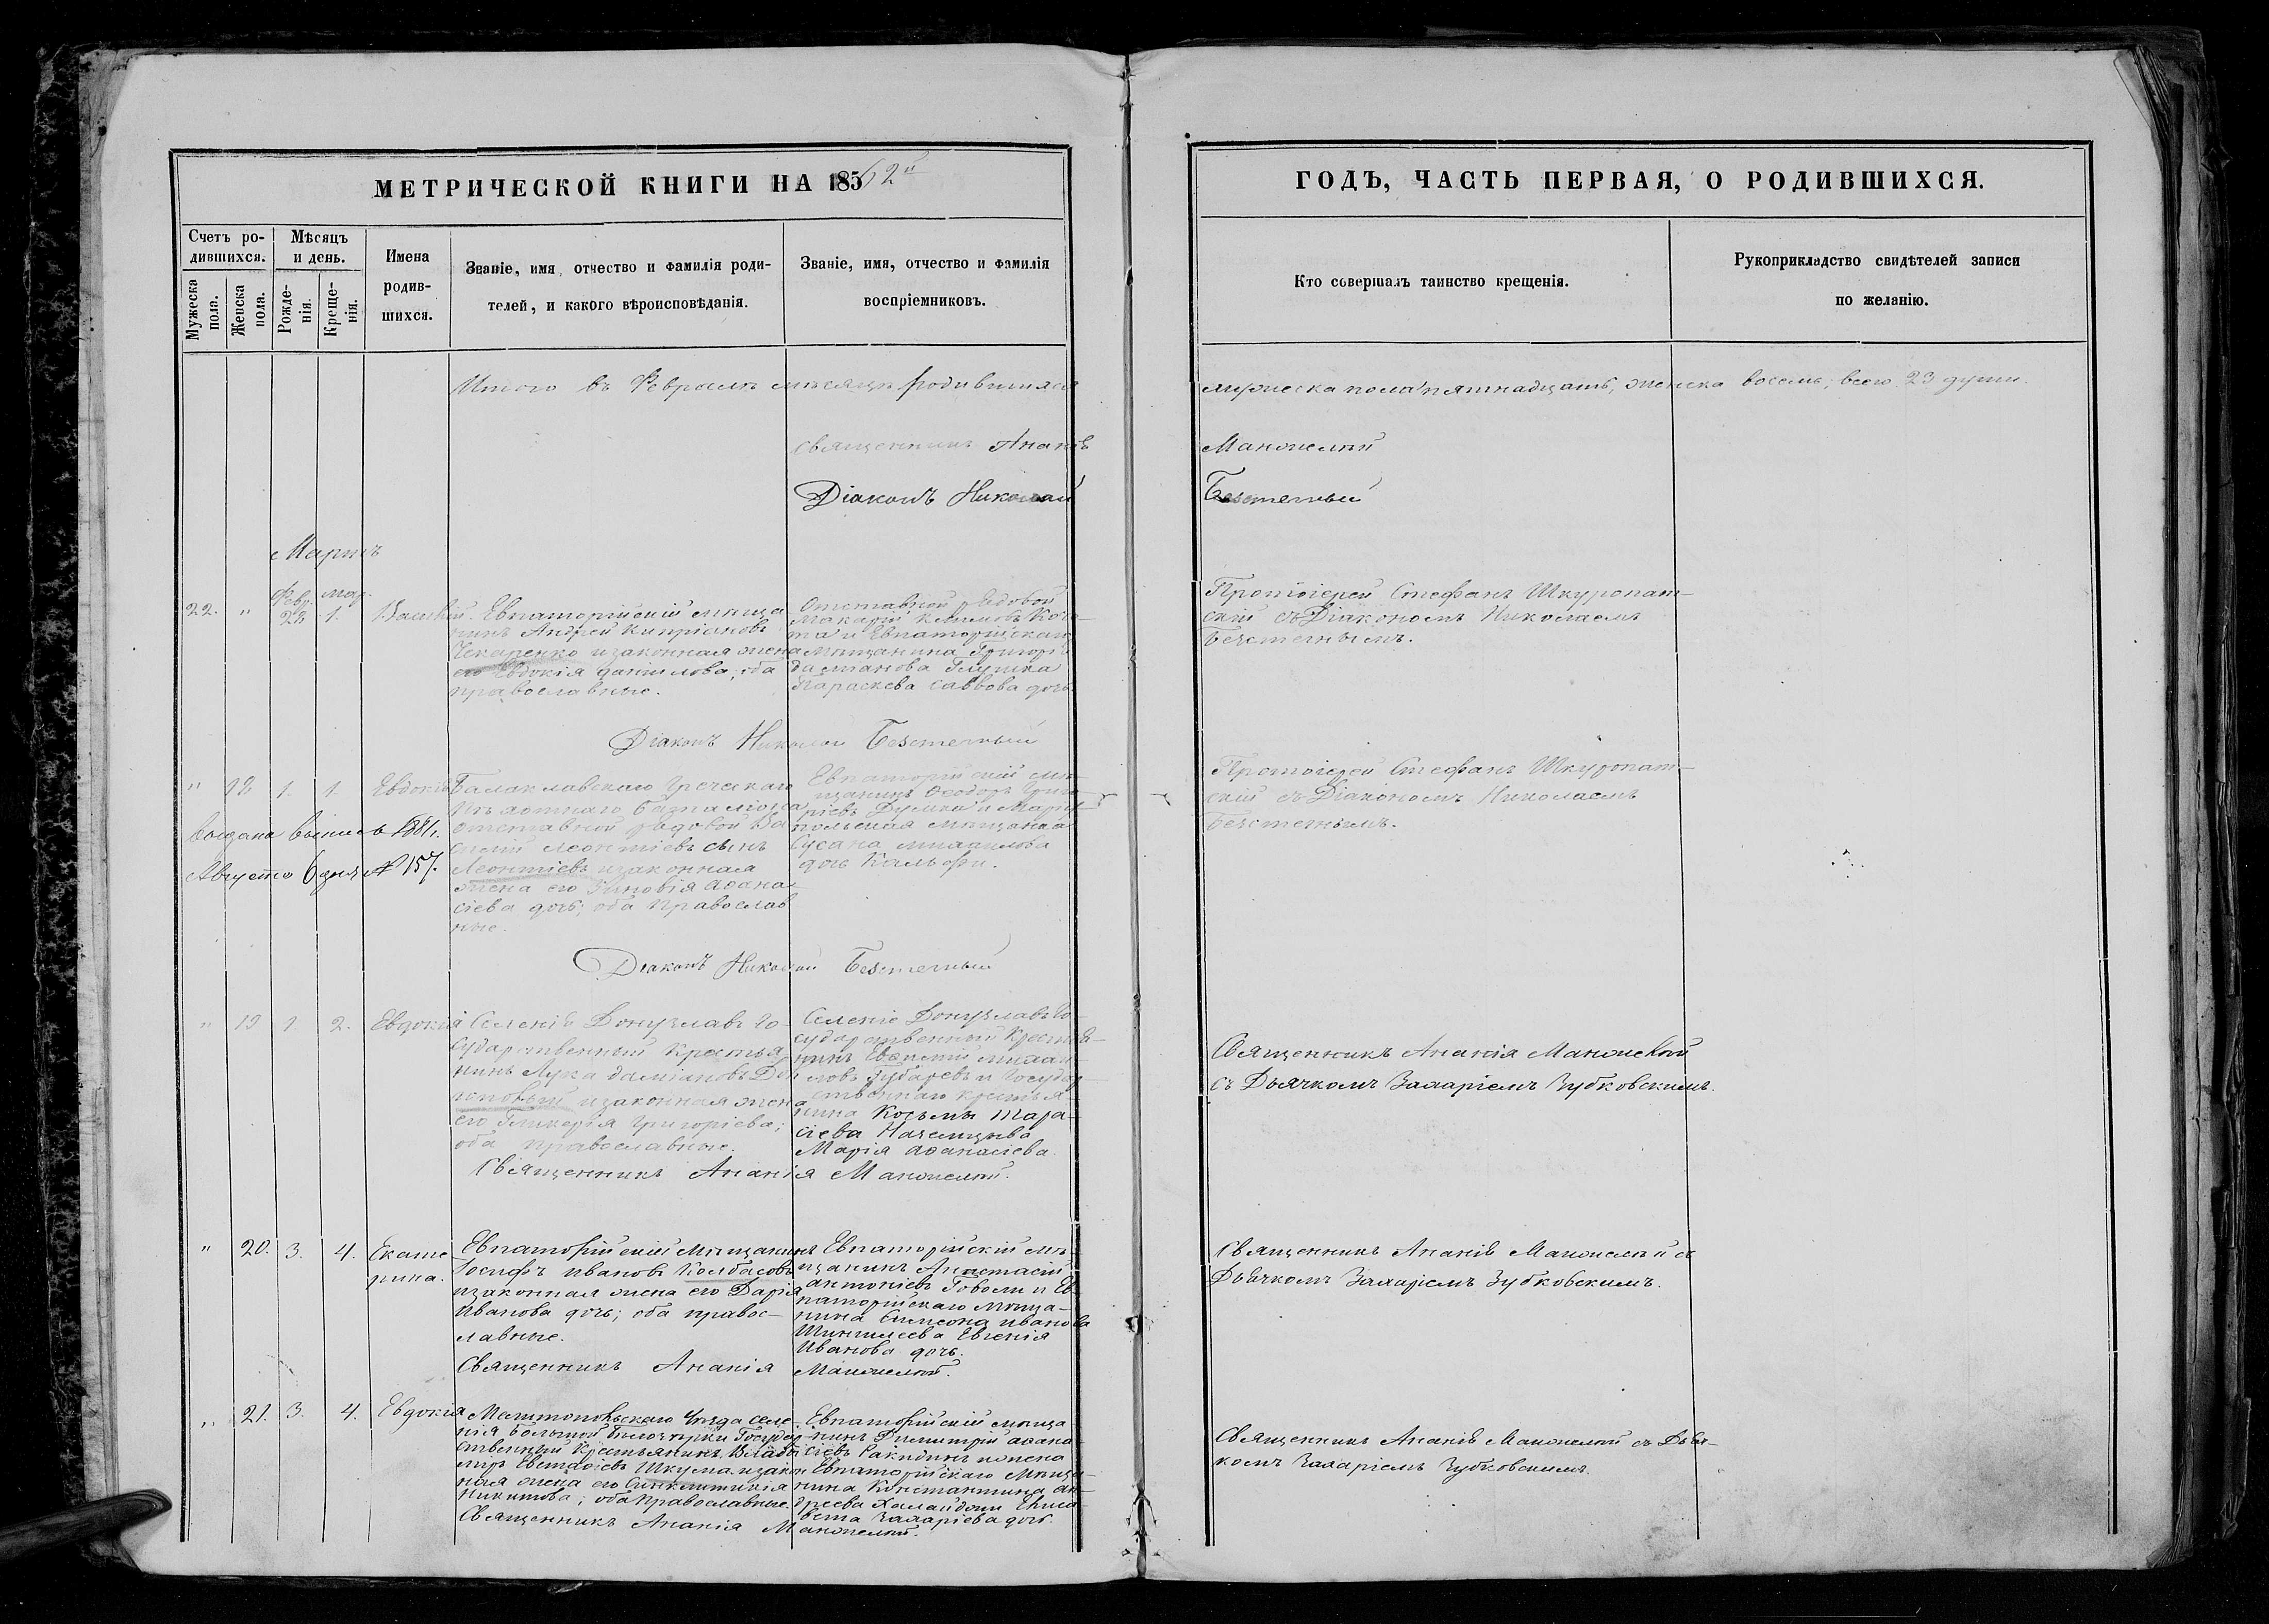 МЕТРИЧЕСКОЙ КНИГИ НА 1862й
ГОДЪ, ЧАСТЬ ПЕРВАЯ, О РОДИВШИХСЯ.
Счетъ ро-
дившихся.
Мужеска
пола.
Женска
пола.
Мѣсяцъ
и день.
Рожде-
нія.
Креще-
нія.
Имена
родив-
шихся.
Званіе, имя, отчество и фамилія роди-
телей, и какого вѣроисповѣданія.
Званіе, имя, отчество и фамилія
воспріемниковъ.
Кто совершалъ таинство крещенія.
Рукоприкладство свидѣтелей записи
по желанію.
Итого въ Февралѣ мѣсяцѣ родившихся
мужеска пола пятнадцать, женска восемь, всего 23 души.
Священникъ Ананія
Діаконъ Николай
Безтечный
Мартъ
22. " Февр. 28 мар. 1. Василій.
Евпаторійскій мѣща
нинъ Андрей Кипріановъ
Чекаренко и законная жена
его Евдокія Даніилова, оба
православные.
Отставной рядовой
Макарій Климовъ
та и Евпаторійскаго
мѣщанина Григорія
Даміанова Глушка
Параскева Саввова дочь.
Протоіерей Стефанъ Шкуропат-
скій съ Діакономъ Николаемъ
Безтечнымъ.
Діаконъ Николай Безтечный
" 18 1. 1. Евдокія
Балаклавскаго Греческаго
Пѣхотнаго баталіона
отставной рядовой Ва
силій Леонтіевъ сынъ
Леонтіевъ и законная
жена его Зиновія Аѳана
сіева дочь; оба православ
ные.
Евпаторійскій мѣ-
щанинъ Ѳеодоръ Григо
ріевъ Думка и Маріу
польская мѣщанка
Сусана Михаилова
дочь Кальфи.
Выдана выпись 1881г.
Августа 6 дня № 157.
Протоіерей Стефанъ Шкуропат-
скій съ Діакономъ Николаемъ
Безтечнымъ.
Діаконъ Николай Безтечный
" 19 1. 2. Евдокія
Селенія Донузлавъ Го-
сударственный Крестья
нинъ Лука Даміановъ
и законная жена
его Гликерія Григоріева;
оба православные.
Селеніе Донузлавъ Го-
сударственный Крестья-
нинъ Евѳимій Михаи
ловъ Губаревъ и Государ-
ственнаго крестья
нина Козьмы Тара-
сіева
Марія Аѳанасіева
Священникъ Ананія
съ Дьячкомъ Захаріемъ Зубковскимъ.
Священникъ Ананія
" 20. 3. 4. Екате
рина.
Евпаторійскій Мѣщанинъ
Іосифъ Ивановъ Колбасовъ
и законная жена его Дарія
Иванова дочь; оба правос-
лавные.
Евпаторійскій мѣ-
щанинъ Анастасій
Антоніевъ Говоли и Ев-
паторійскаго мѣща-
нина Симеона Иванова
Шиншеева Евгенія
Иванова дочь.
Священникъ Ананія
Дьячкомъ Захаріемъ Зубковскимъ.
Священникъ Ананія
" 21. 3. 4. Евдокія
Мелитопольскаго Уѣзда селе-
нія Большой Бѣлозерки Государ-
ственный Крестьянинъ Влади
миръ Евстафіевъ Шкума и закон
ная жена его Синклитикія
Никитова; оба православные.
Евпаторійскій мѣща
нинъ Димитрій Аѳана
сіевъ и жена
Евпаторійскаго Мѣща-
нина Константина Ан-
дреева Елиса
вета Захаріева дочь.
Священникъ Ананія съ Дья-
комъ Захаріемъ Зубковскимъ.
Священникъ Ананія